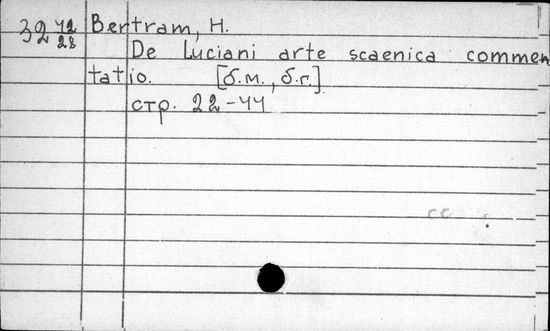 32 42/28 Bertram, H.
De Luciani arte scaenica commen
tatio. [б.м., б.г.]
стр. 22-44